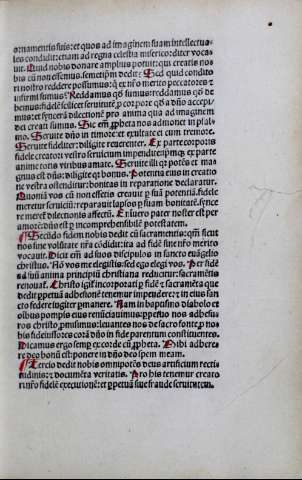 ornamentis suis: et quos ad imaginem suam intellectua-
les condidit: etiam ad regna celestia misericorditer vocauit.
Quid nobis donare amplius potuit: qui creatis no-
bis cū non essemus. semetipm dedit: Sed quid condito
ri nostro reddere possumus: q̄ ex n̄ro merito peccatores et
infirmi sumus: Reddamus qd̄ sumus: reddamus qd̄ de
bemus: fidelē scilicet seruitutē p corpore qd̄ a dn̄o accepi-
mus: et sincerā dilectionē pro anima qua ad imaginem
dei creati sumus. Sic em̄ ꝓpheta nos admonet in psal
mo. Seruite dn̄o in timore: et exultate ei cum tremore.
Seruite fideliter: diligite reuerenter. Ex parte corporis
fidele creatori vestro seruicium impendite: ipm̄qz ex parte
anime totis viribus amate. Seruite illi qz potēs et ma
gnus est dn̄s: diligite qz bonus. Potentia eius in creatio
ne vestra ostenditur: bonitas in reparatione declaratur.
Quoniā vos cū non essetis creauit p suā potentiā. fidele
meretur seruiciū: reparauit lapsos p suam bonitatē. synce
re meret dilectionis affectū. Et vero pater noster est per
amorē: dn̄s est p incomprehensibilē potestatem.
Secūdo fidem nobis dedit cū sacramentis: qm̄ sicut
nos sine volūtate n̄ra cōdidit: ita ad fidē sine n̄ro merito
vocauit. Dicit em̄ ad suos discipulos in sancto euāgelio
christus. Nō vos me elegistis: sed ego elegi vos. Per fidē
asūnt anima principiū christiana reducitur: sacramētis
renouat. Christo igit̄ incorporati p fidē et sacramēta que
dedit ppetuā adhesionē tenemur impendere: et in eius san
cto federe iugiter pmanere. Nam in baptismo diabolo et
oībus pompis eius renūciauimus: ppetuo nos adhesu-
ros christo pmisimus: leuantes nos de sacro fonte p no-
bis fideiussores corā dn̄o in fide parentum constituentes.
Dicamus ergo semp ex corde cū ꝓpheta. Mihi adhere
re deo bonū est: ponere in dn̄o deo spem meam.
Tercio dedit nobis omnipotēs deus artificium recti
tudinis: et documēta veritatis. Pro his tenemur creato
ri n̄ro fidelē executionē: et ppetuā siue fraude seruitutem.